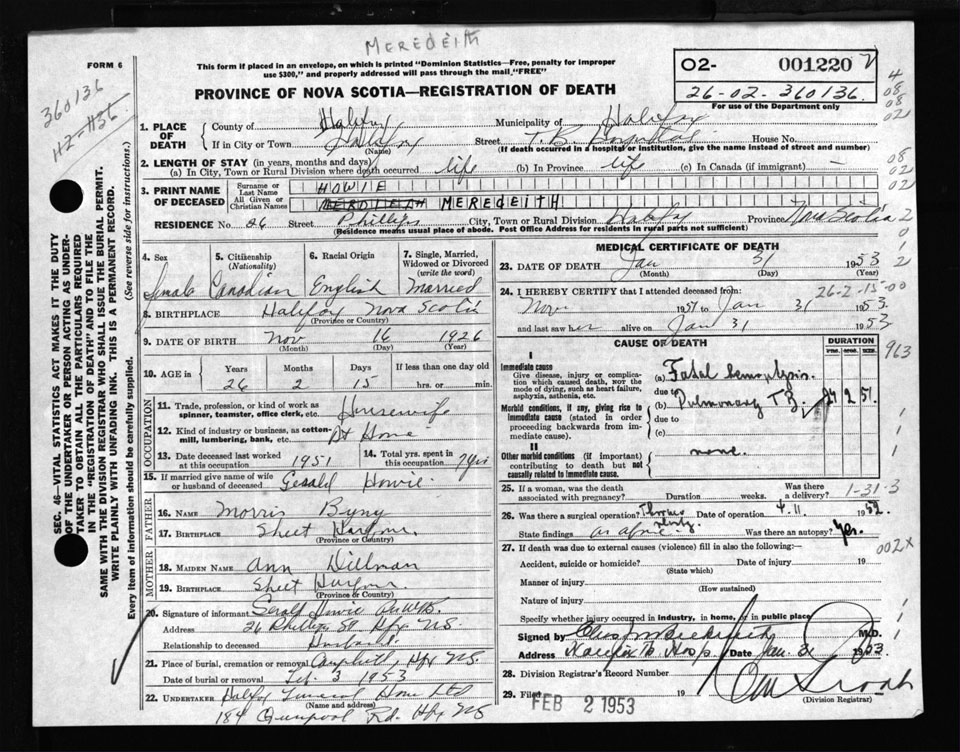 MEREDEITH
FORM 6
This form if placed in an envelope, on which is printed "Dominion Statistics—Free, penalty for improper
use $300," and properly addressed will pass through the mail "FREE"
PROVINCE OF NOVA SCOTIA—REGISTRATION OF DEATH
O2- 001220
26-02-360136
For use of the Department only
360136
42-H36
4
08
08
02
1. PLACE OF DEATH
County of Halifax Municipality of Halifax
If in City or Town Halifax Street T.B. Hospital House No.
(Name) (If death occurred in a hospital or institution, give the name instead of street and number)
2. LENGTH OF STAY (in years, months and days)
(a) In City, Town or Rural Division where death occurred life (b) In Province life (c) In Canada (if immigrant) —
08
02
02
3. PRINT NAME OF DECEASED
Surname or Last Name HOWIE
All Given or Christian Names MEREDEITH
RESIDENCE No 26 Street Phillips City, Town or Rural Division Halifax Province Nova Scotia
(Residence means usual place of abode. Post Office Address for residents in rural parts not sufficient)
4. Sex
5. Citizenship (Nationality)
6. Racial Origin
7. Single, Married, Widowed or Divorced (write the word)
Female Canadian English Married
8. BIRTHPLACE Halifax Nova Scotia
(Province or Country)
9. DATE OF BIRTH Nov 16 1926
(Month) (Day) (Year)
10. AGE in Years Months Days If less than one day old
26 2 15 hrs. or min.
OCCUPATION
11. Trade, profession, or kind of work as
spinner, teamster, office clerk, etc. Housewife
12. Kind of industry or business, as cotton-
mill, lumbering, bank, etc. At Home
13. Date deceased last worked at this occupation 1951
14. Total yrs. spent in this occupation 7 Yrs
15. If married give name of wife
or husband of deceased Gerald Howie
FATHER
16. Name Morris
17. Birthplace Sheet Harbour
(Province or Country)
MOTHER
18. Maiden Name Ann Dillman
19. Birthplace Sheet Harbour
(Province or Country)
20. Signature of informant Gerald Howie
Address 26 Phillips St Hfx NS
Relationship to deceased Husband
21. Place of burial, cremation or removal Hfx NS.
Date of burial or removal Feb. 3 1953
22. Undertaker Halifax Funeral Home Ltd
(Name and address)
184 Quinpool Rd. Hfx NS
MEDICAL CERTIFICATE OF DEATH
23. DATE OF DEATH Jan 31 1953
(Month) (Day) (Year)
24. I HEREBY CERTIFY that I attended deceased from: 26-2-15-00
Nov 1951 to Jan 31 1953
and last saw her alive on Jan 31 1953
CAUSE OF DEATH DURATION
YRS. MOS. DYS.
963
I
Immediate cause
Give disease, injury or complica-
tion which caused death, NOT the
mode of dying, such as heart failure,
asphyxia, asthenia, etc.
(a) Fatal hemoptysis.
due to
Morbid conditions, if any, giving rise to
immediate cause (stated in order
proceeding backwards from im-
mediate cause).
(b) Pulmonary T.B.
due to
(c)
II
Other morbid conditions (if important)
contributing to death but not
causally related to immediate cause.
none.
25. If a woman, was the death associated with pregnancy? Duration weeks. Was there a delivery? 1-31-3
26. Was there a surgical operation? Date of operation 4.11. 1952
State findings as above. Was there an autopsy? Yes.
002X
27. If death was due to external causes (violence) fill in also the following:—
Accident, suicide or homicide? Date of injury 19
(State which)
Manner of injury
(How sustained)
Nature of injury
Specify whether injury occurred in industry, in home, or in public place
Signed by M.D.
Address Halifax Tb. Hosp. Date Jan. 31 1953.
28. Division Registrar's Record Number
29. Filed FEB 2 1953 19
(Division Registrar)
SEC. 46—VITAL STATISTICS ACT MAKES IT THE DUTY
OF THE UNDERTAKER OR PERSON ACTING AS UNDER-
TAKER TO OBTAIN ALL THE PARTICULARS REQUIRED
IN THE "REGISTRATION OF DEATH" AND TO FILE THE
SAME WITH THE DIVISION REGISTRAR WHO SHALL ISSUE THE BURIAL PERMIT.
WRITE PLAINLY WITH UNFADING INK. THIS IS A PERMANENT RECORD.
Every item of information should be carefully supplied. (See reverse side for instructions.)